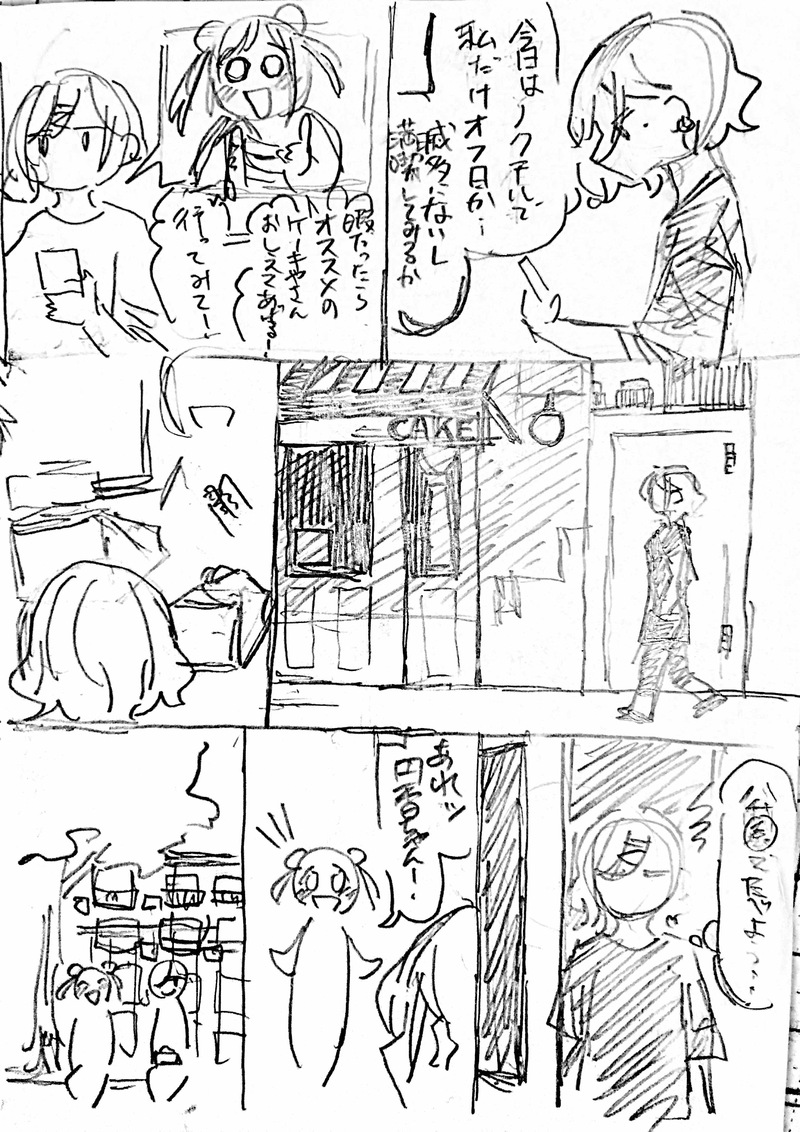 今日はノクチルで
私だけオフ日か…
滅多にないし
満喫してみるか
暇だったら
オススメの
ケーキやさん
おしえてあげる!
行ってみて!
CAKE
公園で食べよ…
あれッ
円香ちゃん!